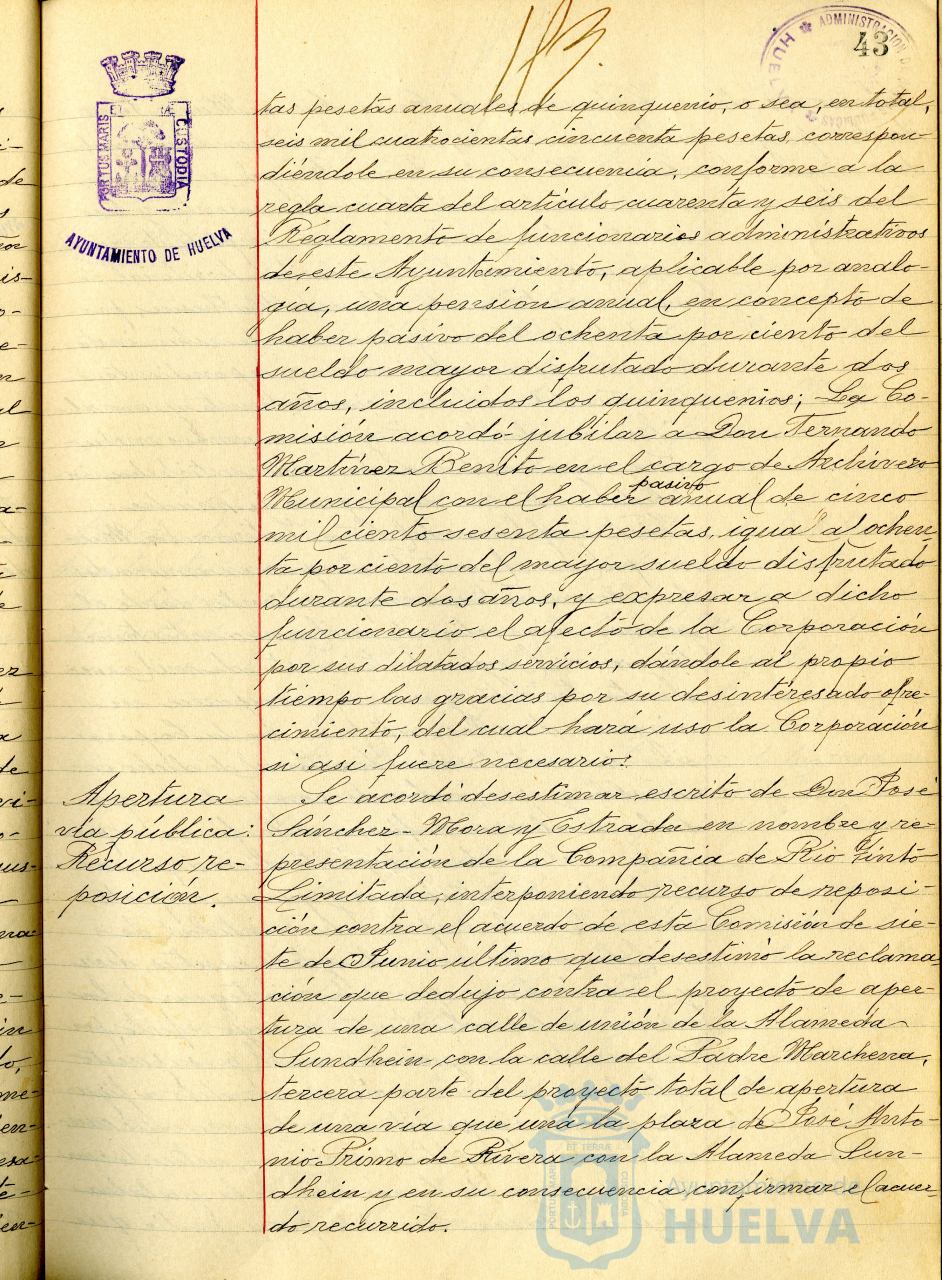 113.
43
ADMINISTRACION
HUEL
PORTUS MARIS
CUSTODIA
AYUNTAMIENTO DE HUELVA
tas pesetas anuales de quinquenio, o sea, en total,
seis mil cuatrocientas cincuenta pesetas, correspon-
diéndole en su consecuencia, conforme a la
regla cuarta del artículo cuarenta y seis del
Reglamento de funcionarios administrativos
de este Ayuntamiento, aplicable por analo-
gía, una pensión anual, en concepto de
haber pasivo del ochenta por ciento del
sueldo mayor disfrutado durante dos
años, incluidos los quinquenios; La Co-
misión acordó jubilar a Don Fernando
Martínez Benito en el cargo de Archivero
Municipal con el haber pasivo anual de cinco
mil ciento sesenta pesetas, igual al ochen
ta por ciento del mayor sueldo disfrutado
durante dos años, y expresar a dicho
funcionario el afecto de la Corporación
por sus dilatados servicios, dándole al propio
tiempo las gracias por su desinteresado ofre-
cimiento, del cual hará uso la Corporación
si asi fuere necesario.
Apertura
vía pública:
Recurso re-
posición.
Se acordó desestimar escrito de Don José
Sánchez-Mora y Estrada en nombre y re-
presentación de la Compañia de Rio Tinto
Limitada, interponiendo recurso de reposi-
ción contra el acuerdo de esta Comisión de sie-
te de Junio último que desestimó la reclama-
ción que dedujo contra el proyecto de aper-
tura de una calle de unión de la Alameda
Sundhein con la calle del Padre Marchena,
tercera parte del proyecto total de apertura
de una vía que una la plaza de José Anto-
nio Primo de Rivera con la Alameda Sun-
dhein y en su consecuencia confirmar el acuer-
do recurrido.
Ayuntamiento de
HUELVA